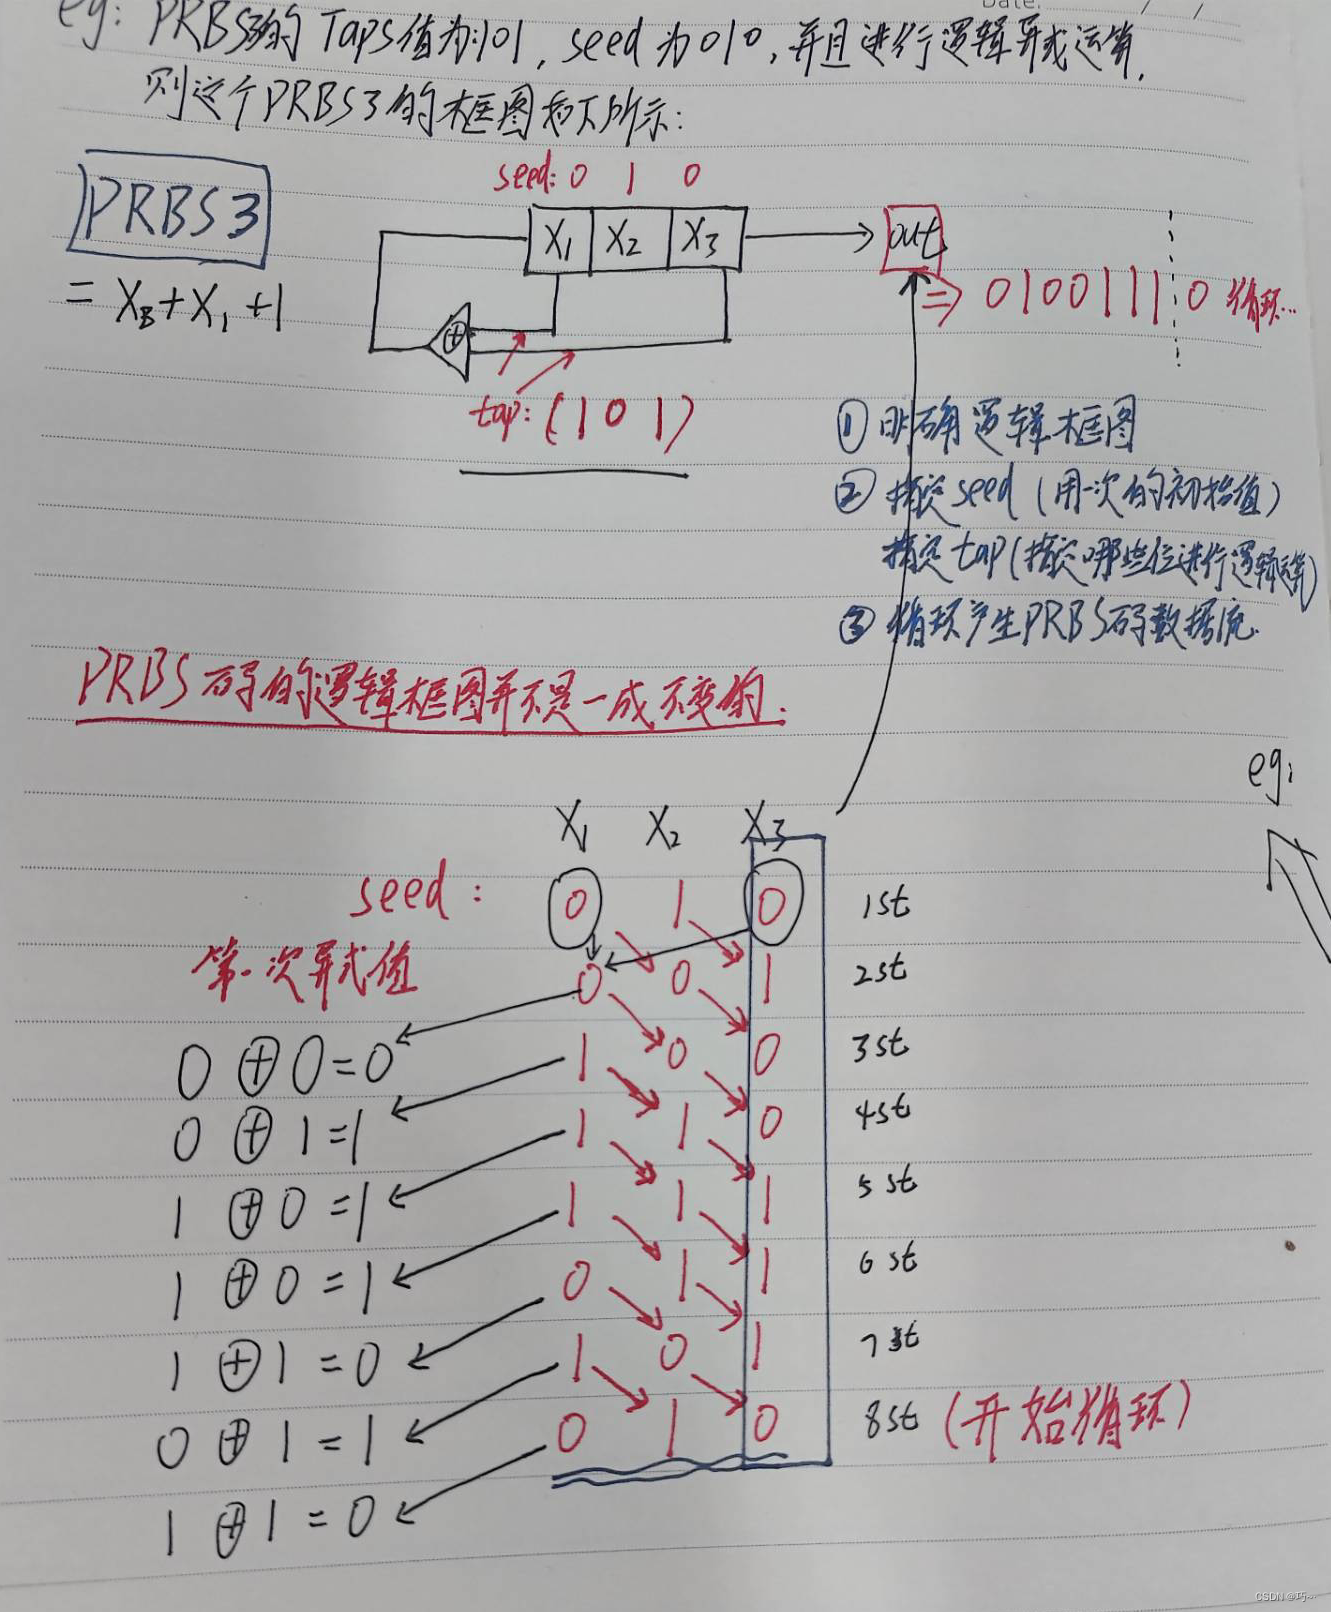 eg: PRBS3的 Taps值为:101, seed 为 010, 并且进行逻辑异或运算,
则这个PRBS3的框图如下所示:
seed: 0 1 0
PRBS3
X1 X2 X3
out
= X3+X1+1
⊕
⇒ 0100111 0 循环...
tap: (1 0 1)
① 明确逻辑框图
② 指定seed (用一次的初始值)
指定tap(指定哪些位进行逻辑运算)
③ 循环产生PRBS码数据流.
PRBS码的逻辑框图并不是一成不变的.
eg:
X1 X2 X3
seed: 0 1 0 1st
第一次异或值 0 0 1 2st
0⊕0=0 1 0 0 3st
0⊕1=1 1 1 0 4st
1⊕0=1 1 1 1 5st
1⊕0=1 0 1 1 6st
1⊕1=0 1 0 1 7st
0⊕1=1 0 1 0 8st (开始循环)
1⊕1=0